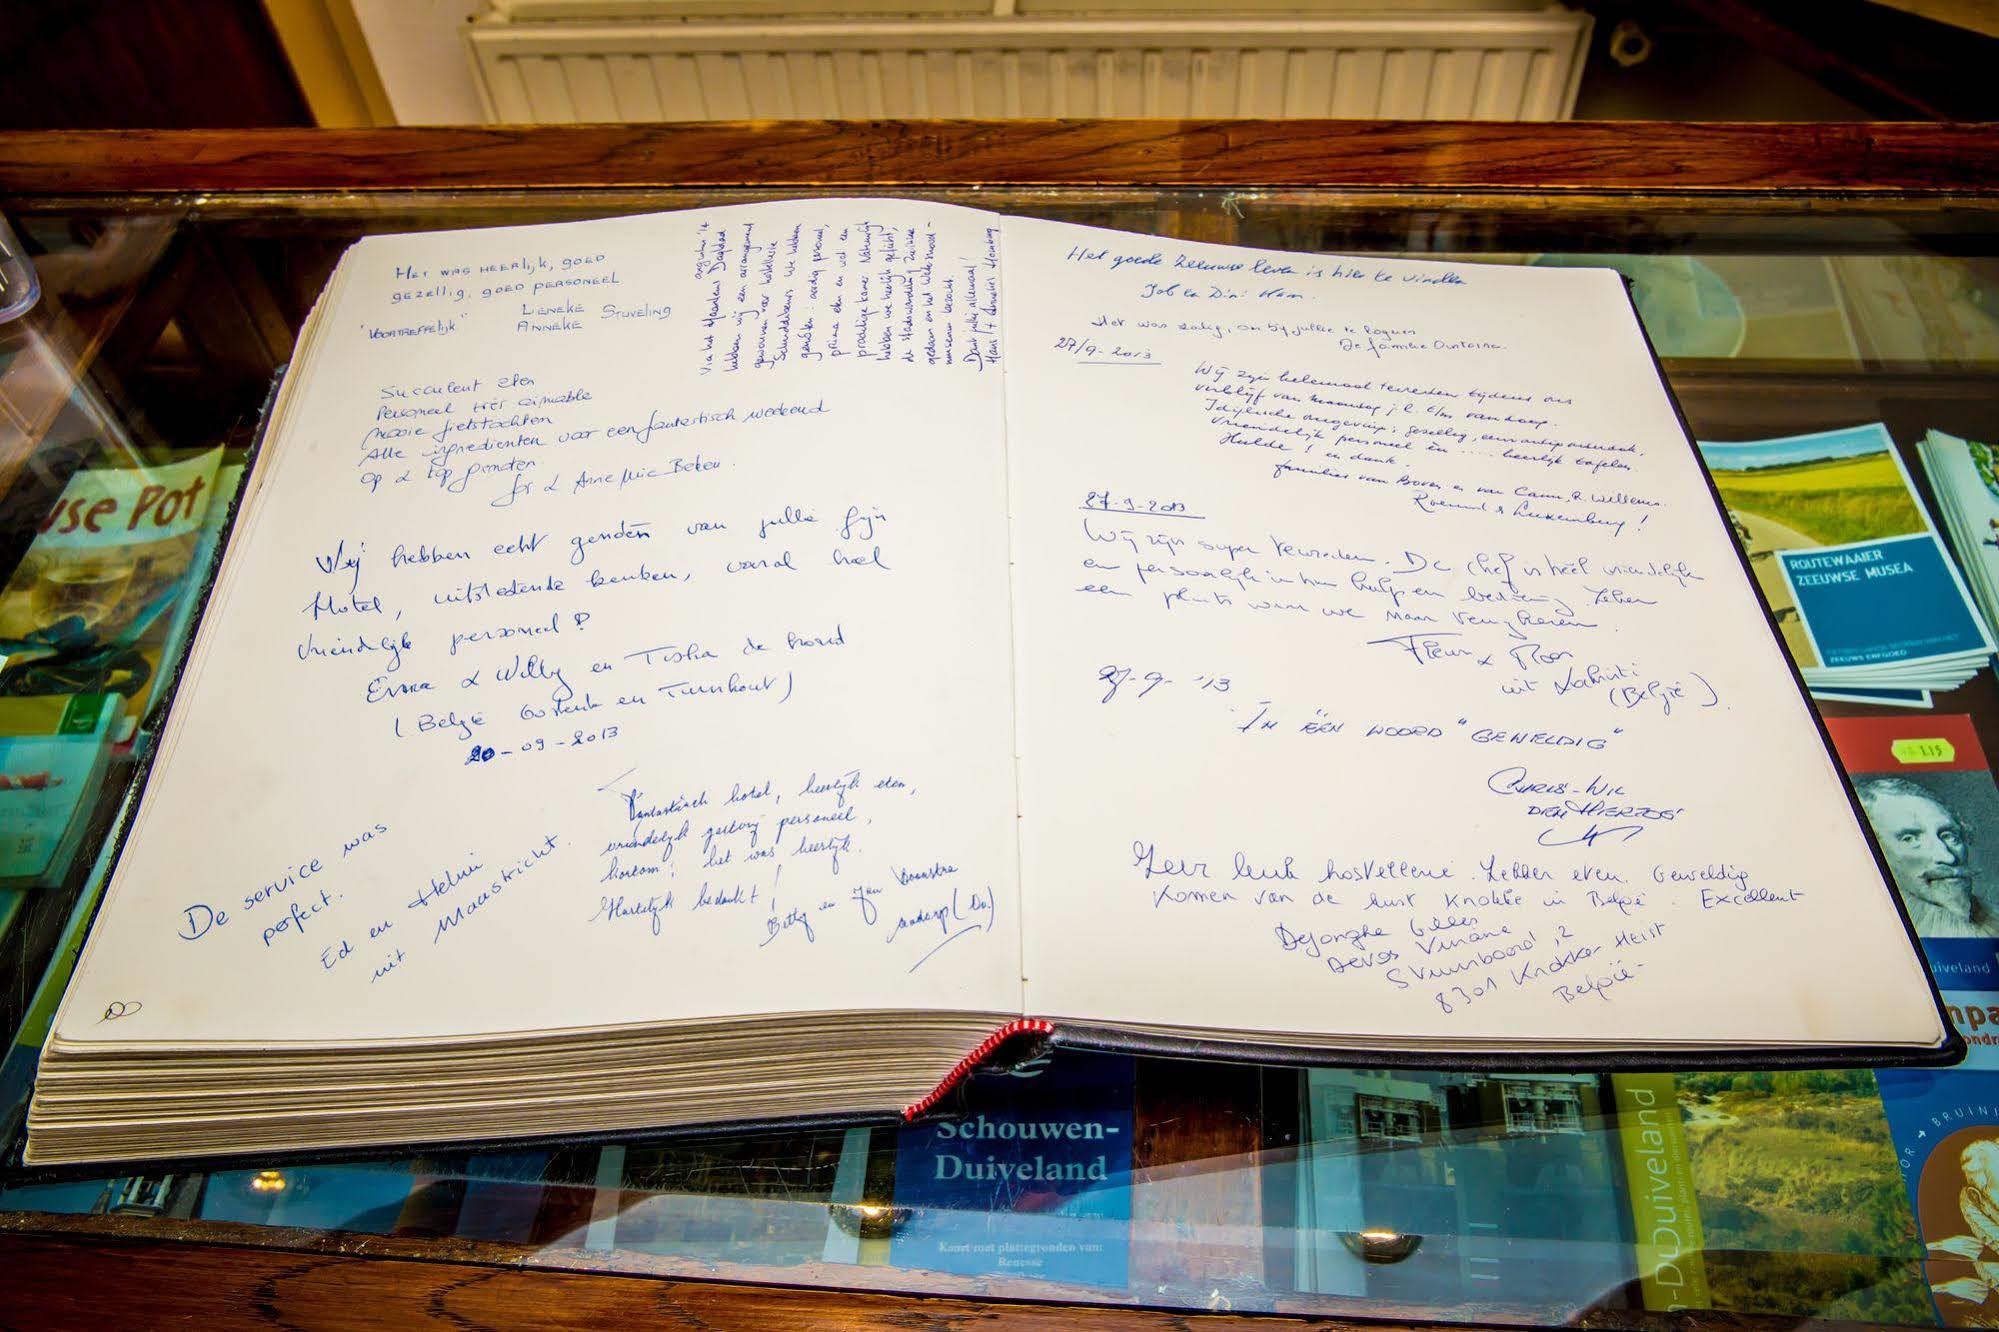 HET WAS HEERLIJK, GOED
GEZELLIG, GOED PERSONEEL
"VOORTREFFELIJK"
LIENEKE STUVELING
ANNEKE
augustus '14
Via het Haarlems Dagblad
hebben wij een arrangement
gewonnen voor hostellerie
Schuddebeurs. We hebben
genoten: aardig personeel,
prima eten en wel een
prachtige kamer. Natuurlijk
hebben we heerlijk gefietst,
de stadswandeling Zierikzee
gedaan en het Watersnood-
museum bezocht.
Dank jullie allemaal!
Hans +
Succulent eten
Personeel très aimable
mooie fietstochten
Alle ingrediënten voor een fantastisch weekend
op de top
& Anne Mie
Wij hebben echt genoten van jullie fijn
Hotel, uitstekende keuken, vooral heel
vriendelijk personeel!
Erna & Willy en
(België en Turnhout)
20-09-2013
De service was
perfect.
Ed en
uit Maastricht.
Fantastisch hotel, heerlijk eten,
vriendelijk personeel,
kortom: het was heerlijk.
Hartelijk bedankt!
Betty en Jan
(Dr.)
Het goede Zeeuwse leven is hier te vinden
Job en Dini Ham.
Het was zalig, om bij jullie te logeren
De familie
27/9-2013
Wij zijn helemaal tevreden tijdens ons
verblijf van maandag j.l. t/m vandaag.
Idyllische omgeving; gezellig,
vriendelijk personeel èn .... heerlijk tafelen.
Hulde! en dank.
families van Boven en van R. Willems.
Roermond & Luxemburg!
27-9-2013
Wij zijn super tevreden. De chef is héél vriendelijk
en persoonlijk in hun hulp en bediening. Zeker
een plaats waar we naar
Fleur & Floor
uit
(België).
27-9-'13
IN ÉÉN WOORD "GEWELDIG"
CHRIS-WIL
DEN HERTOG
Zeer leuk hostellerie. Lekker eten. Geweldig
Komen van de kust Knokke in België. Excellent
Dejonghe Gilles
Devos Viviane
,2
8301 Knokke Heist
België-
USE POT
ROUTEWAAIER
ZEEUWSE MUSEA
ZEEUWS ERFGOED
1.15
uiveland
Schouwen-
Duiveland
Kaart met plattegronden van:
Renesse
-DUIVELAND
BRUINI